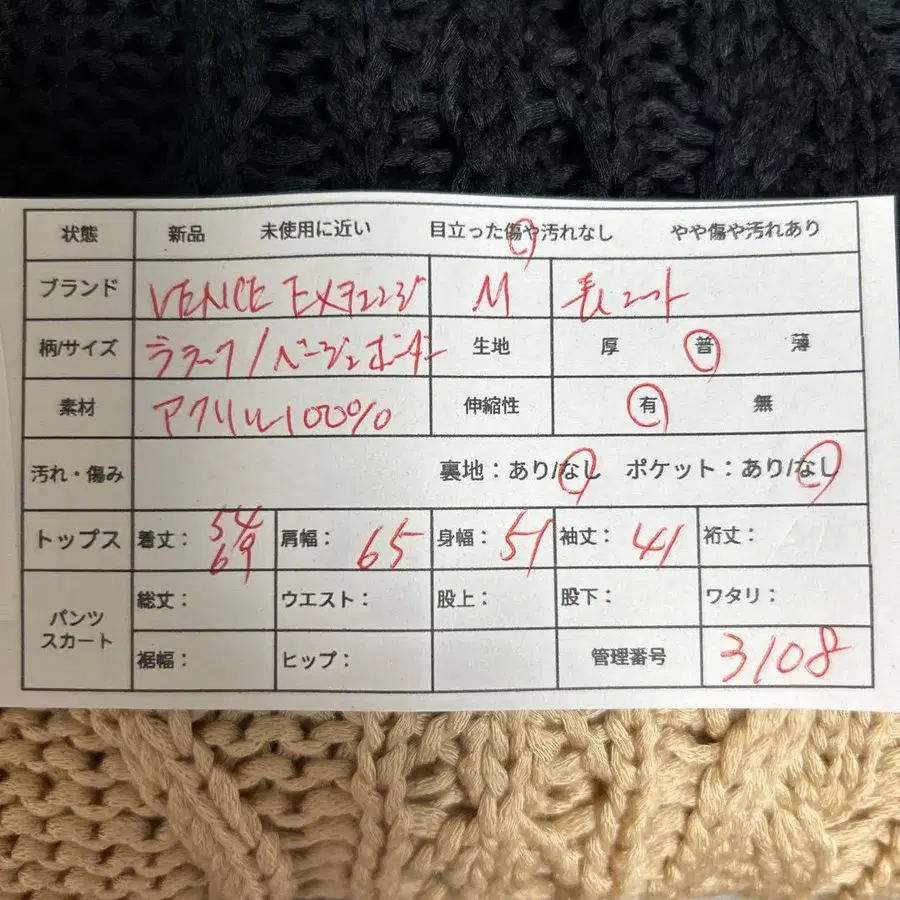 状態 新品 未使用に近い 目立った傷や汚れなし やや傷や汚れあり
ブランド VENCE EXチェンジ M 長ニット
柄/サイズ ブラック/ベージュボーダー 生地 厚 普 薄
素材 アクリル100% 伸縮性 有 無
汚れ・傷み 裏地：あり/なし ポケット：あり/なし
トップス 着丈： 54 69 肩幅： 65 身幅： 51 袖丈： 41 裄丈：
パンツ スカート 総丈： ウエスト： 股上： 股下： ワタリ：
裾幅： ヒップ： 管理番号 3108